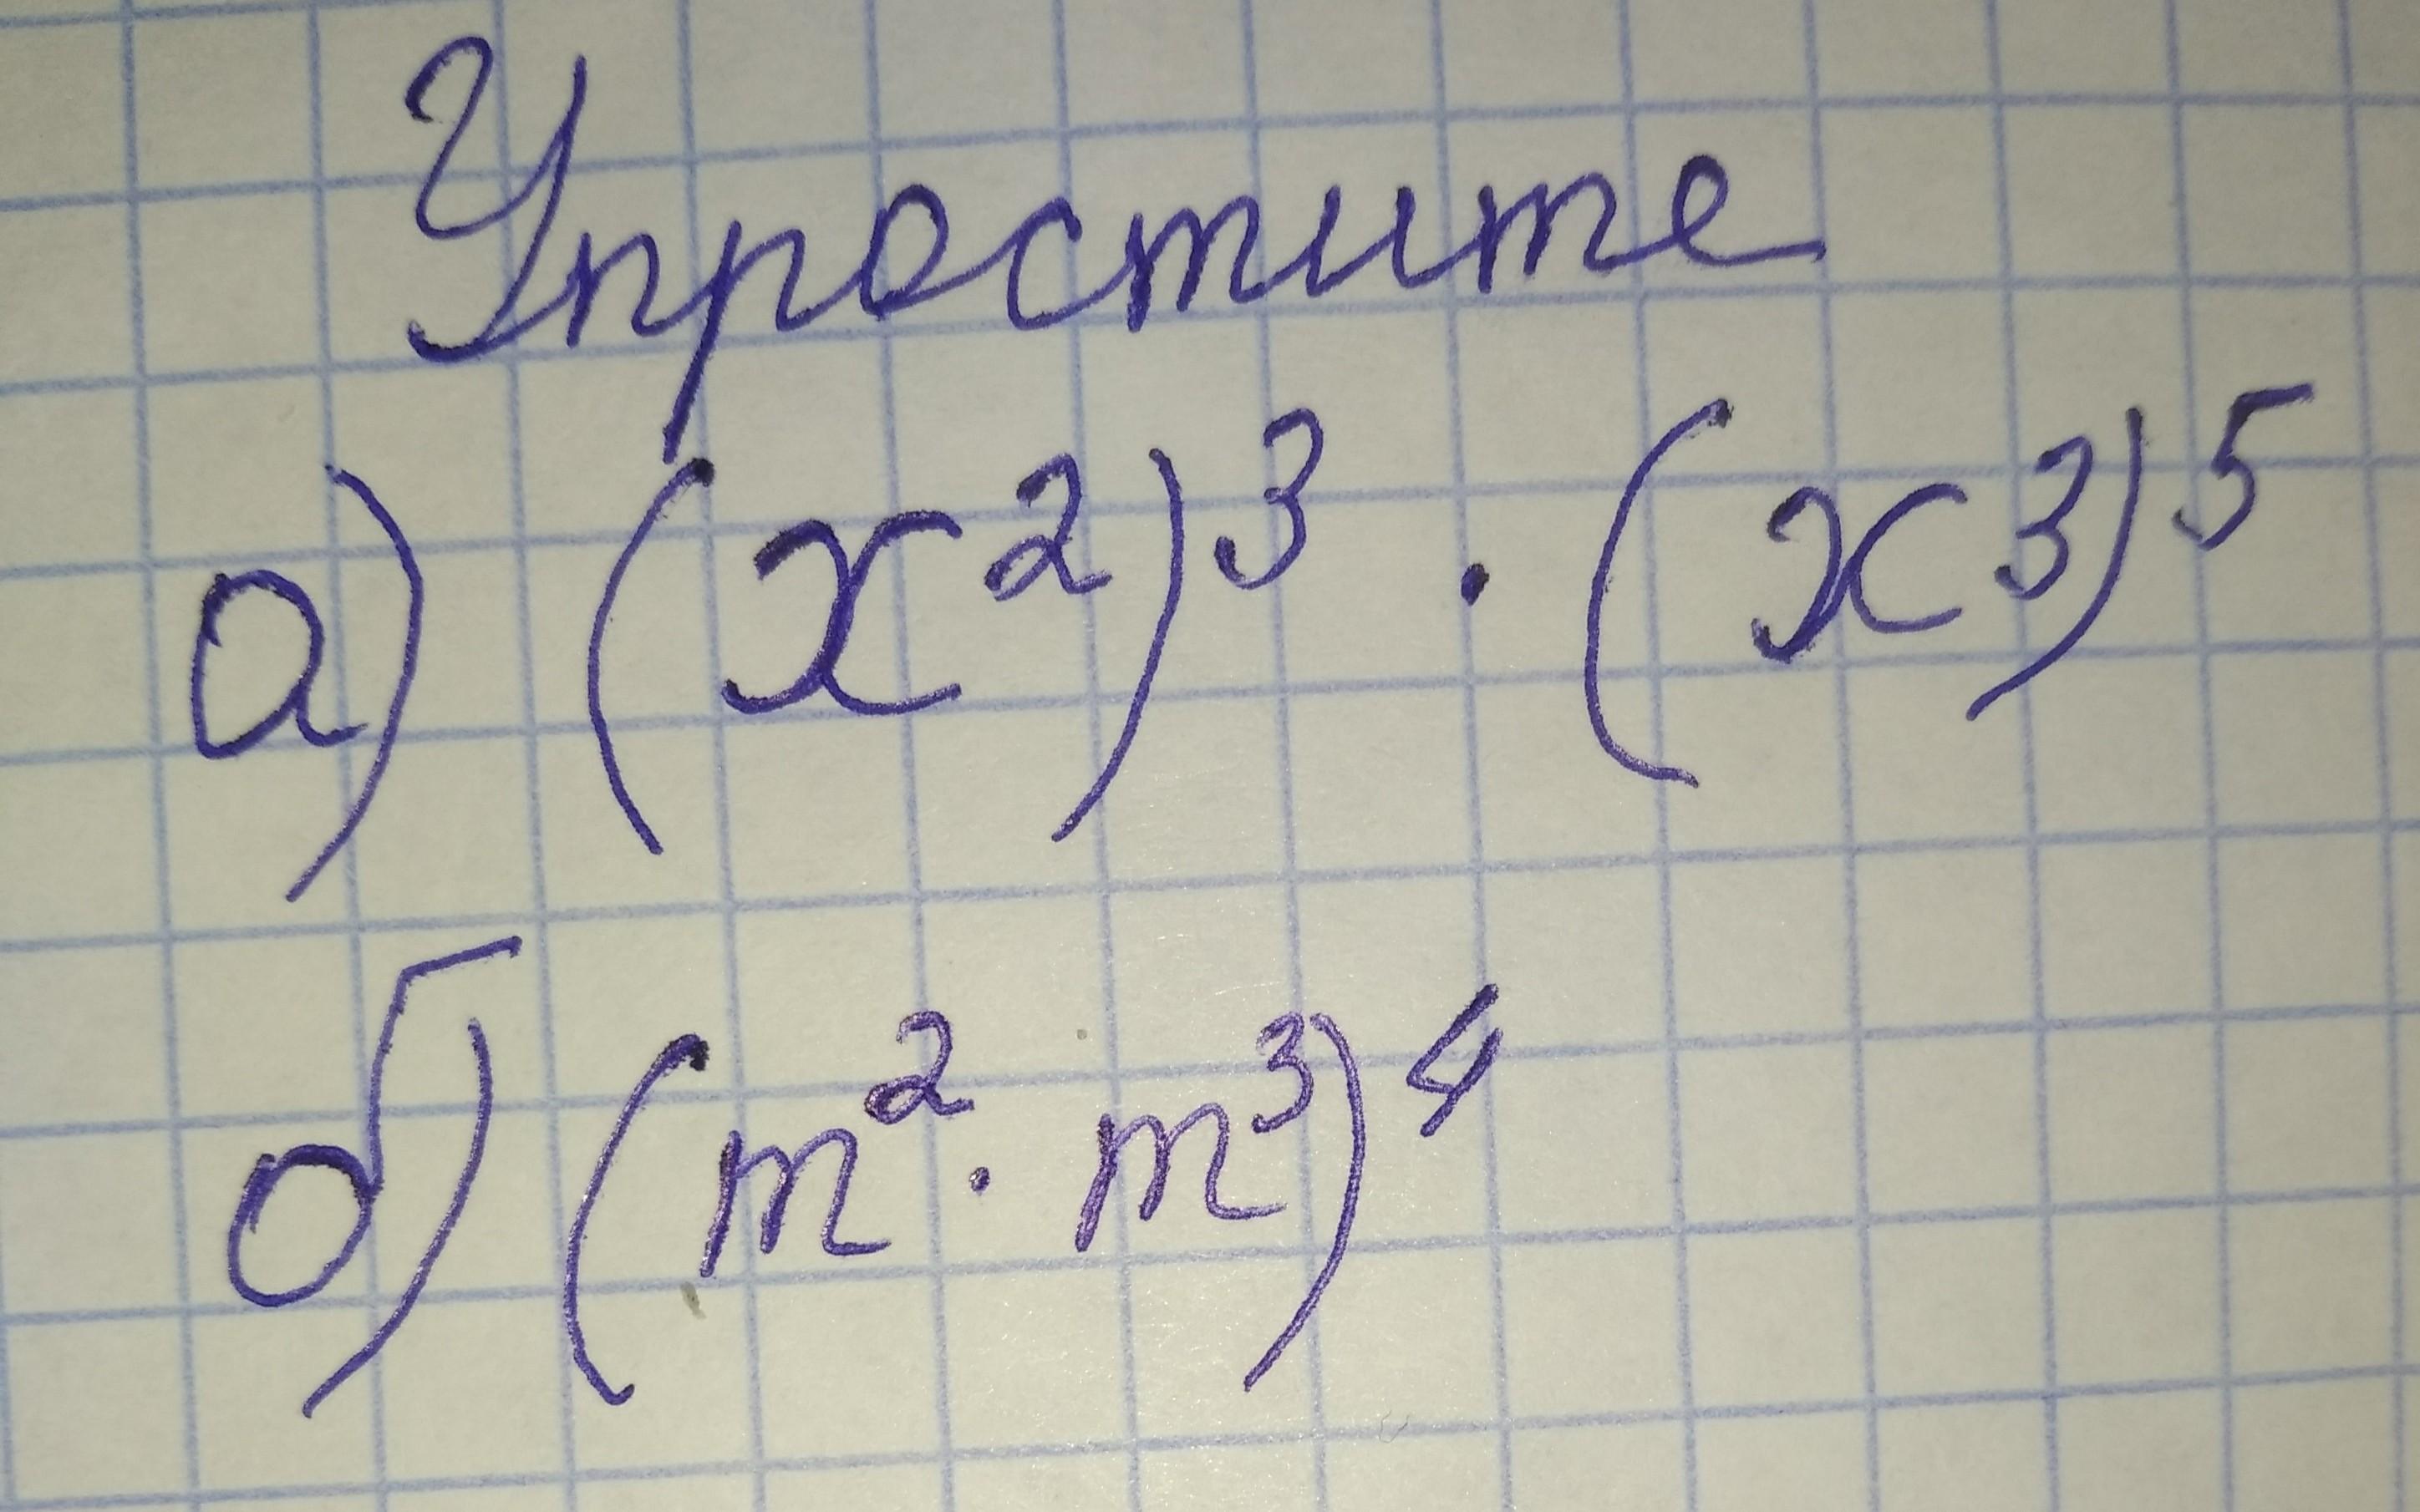 Упростите
а) (x²)³ · (x³)⁵
б) (m² · m³)⁴